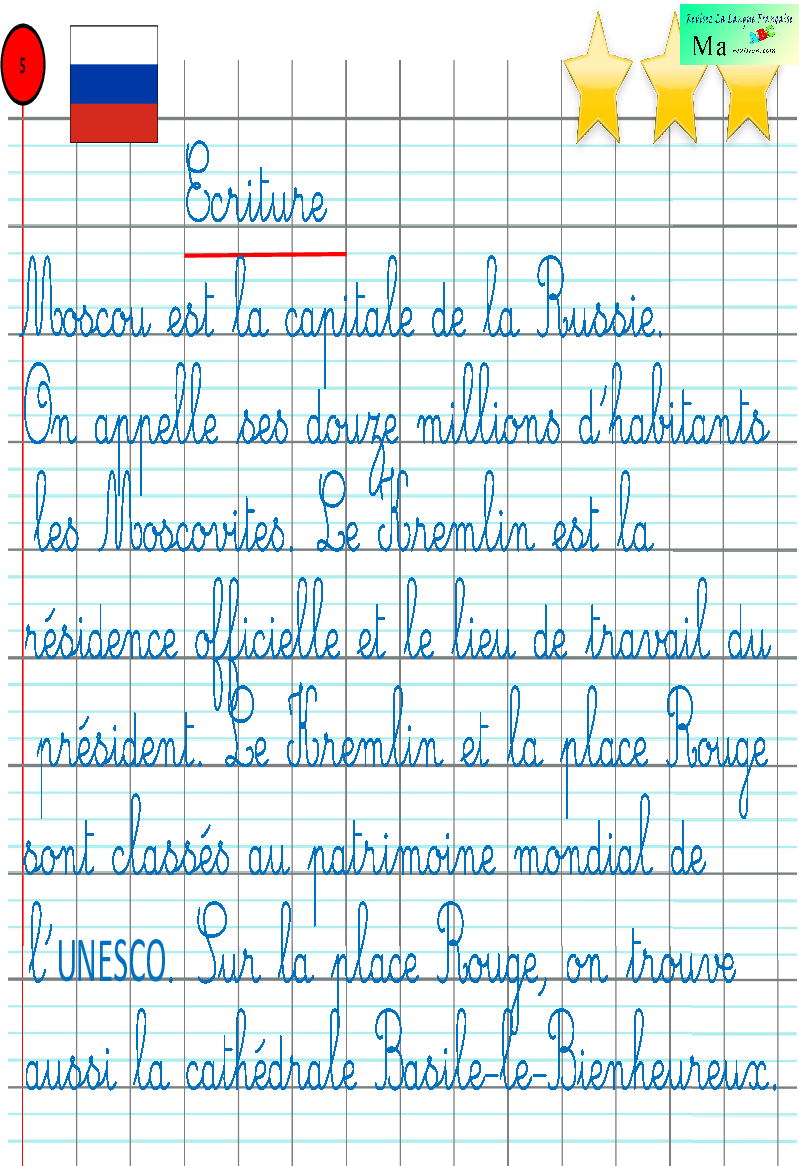 5
Revisez La Langue Française
Ma
revision.com
Ecriture
Moscou est la capitale de la Russie.
On appelle ses douze millions d'habitants
les Moscovites. Le Kremlin est la
résidence officielle et le lieu de travail du
président. Le Kremlin et la place Rouge
sont classés au patrimoine mondial de
l'UNESCO. Sur la place Rouge, on trouve
aussi la cathédrale Basile-le-Bienheureux.